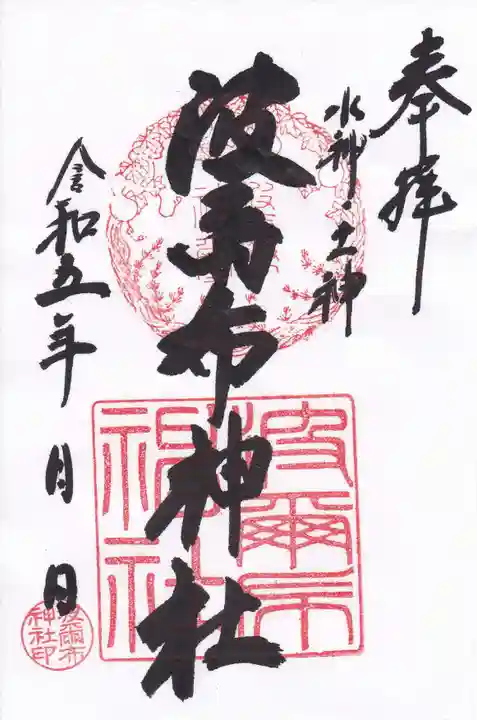 奉拝
水神・土神
波尓布神社
令和五年 月 日
波爾布
神社
波爾布
神社印